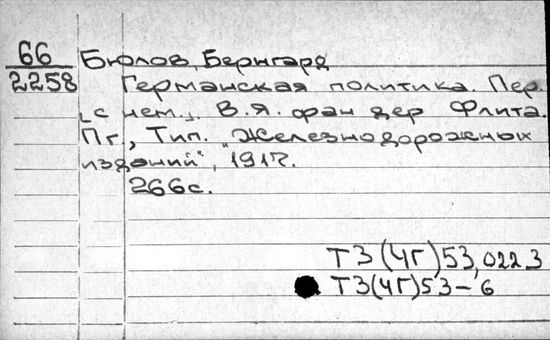 66 Бюлов, Бернгард
2258 Германская политика. Пер.
[с нем.]. В.Я. фан дер Флита.
Пг., Тип. "Железнодорожных
изданий", 1917.
266с.
ТЗ(4Г)53,022 3
ТЗ(4Г)53-6